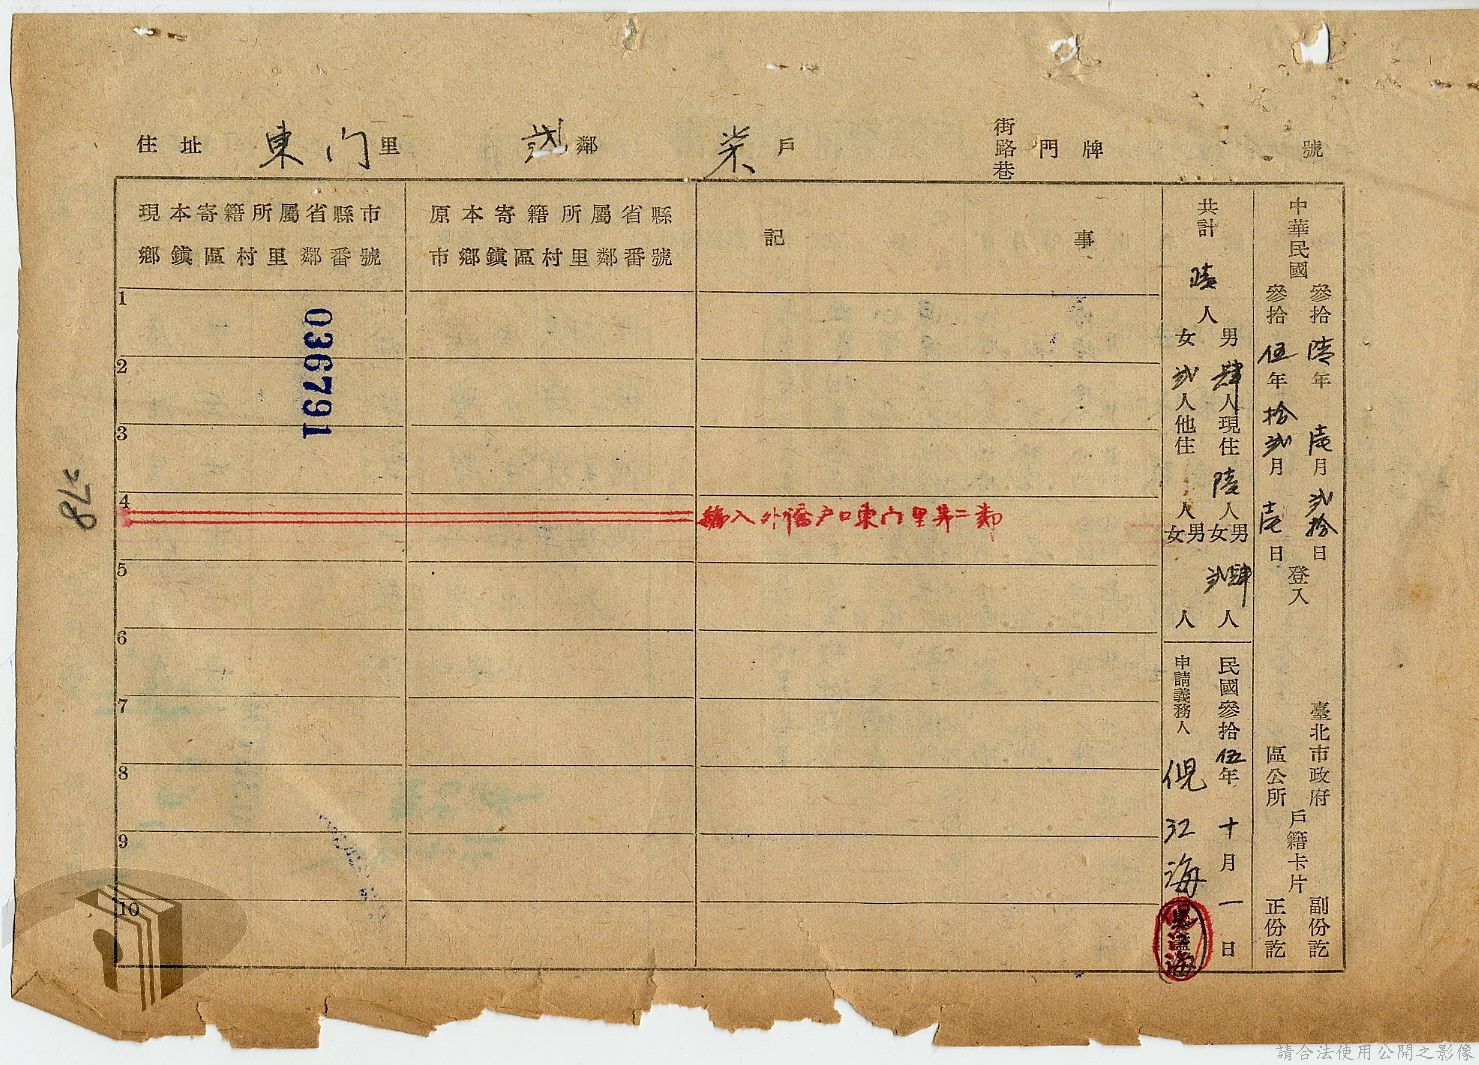 住址 東门里 弍鄰 柒戶 街路巷 門牌 號
中華民國
參拾陸年壱月弍拾日
參拾伍年拾弍月壱日
登入
臺北市政府
區公所
戶籍卡片
副份訖
正份訖
共計 陸人
男肆人現住陸人男肆人
女弍人他住 人女弍人
男女 人
民國參拾伍年十月一日
申請義務人 倪江海
事記
原本寄籍所屬省縣
市鄉鎮區村里鄰番號
現本寄籍所屬省縣市
鄉鎮區村里鄰番號
1
2
3
4
外僑戶口東门里第二鄰
5
6
7
8
9
10
036791
78
請合法使用公開之影像